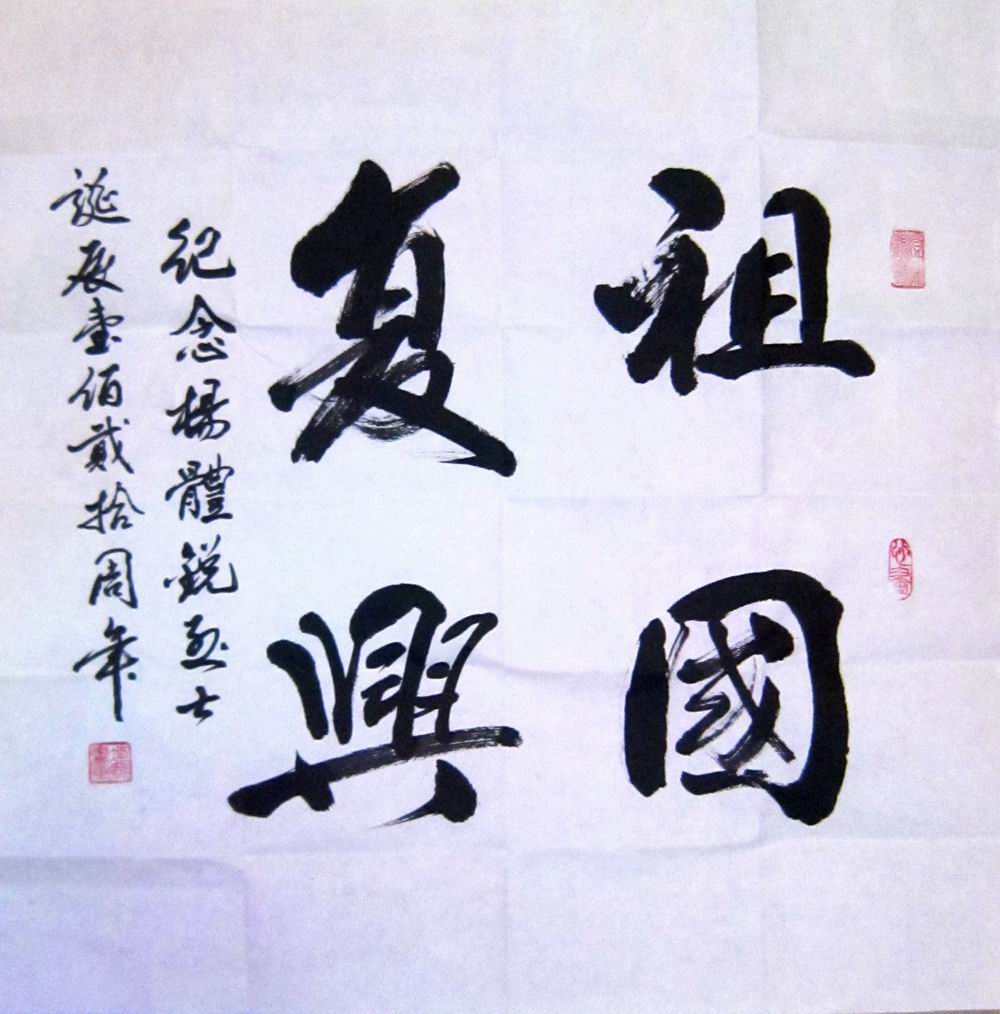 祖國
复興
纪念楊體銳烈士
誕辰壹佰貳拾周年